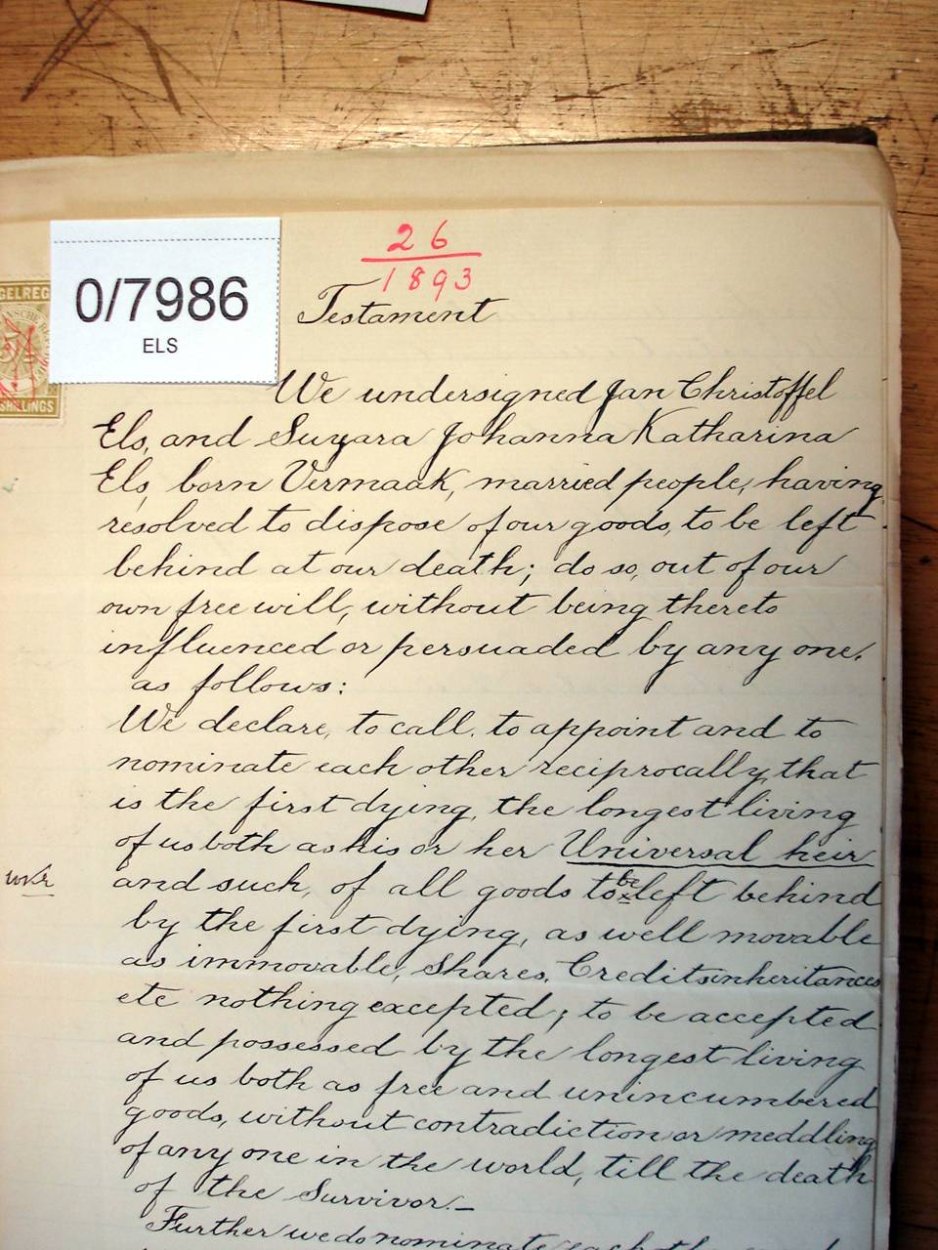 26
1893
GELREG
0/7986
ELS
SHILLINGS
Testament
We undersigned Jan Christoffel
Els, and Suzara Johanna Katharina
Els, born Vermaak, married people, having
resolved to dispose of our goods, to be left
behind at our death; do so, out of our
own free will, without being thereto
influenced or persuaded by any one,
as follows:
We declare, to call, to appoint and to
nominate each other reciprocally, that
is the first dying, the longest living
of us both as his or her Universal heir
and such, of all goods to be left behind
by the first dying, as well movable
as immovable, shares, Credits inheritances
etc nothing excepted; to be accepted
and possessed by the longest living
of us both as free and unincumbered
goods, without contradiction or meddling
of any one in the world, till the death
of the Survivor.—
Further we do nominate each